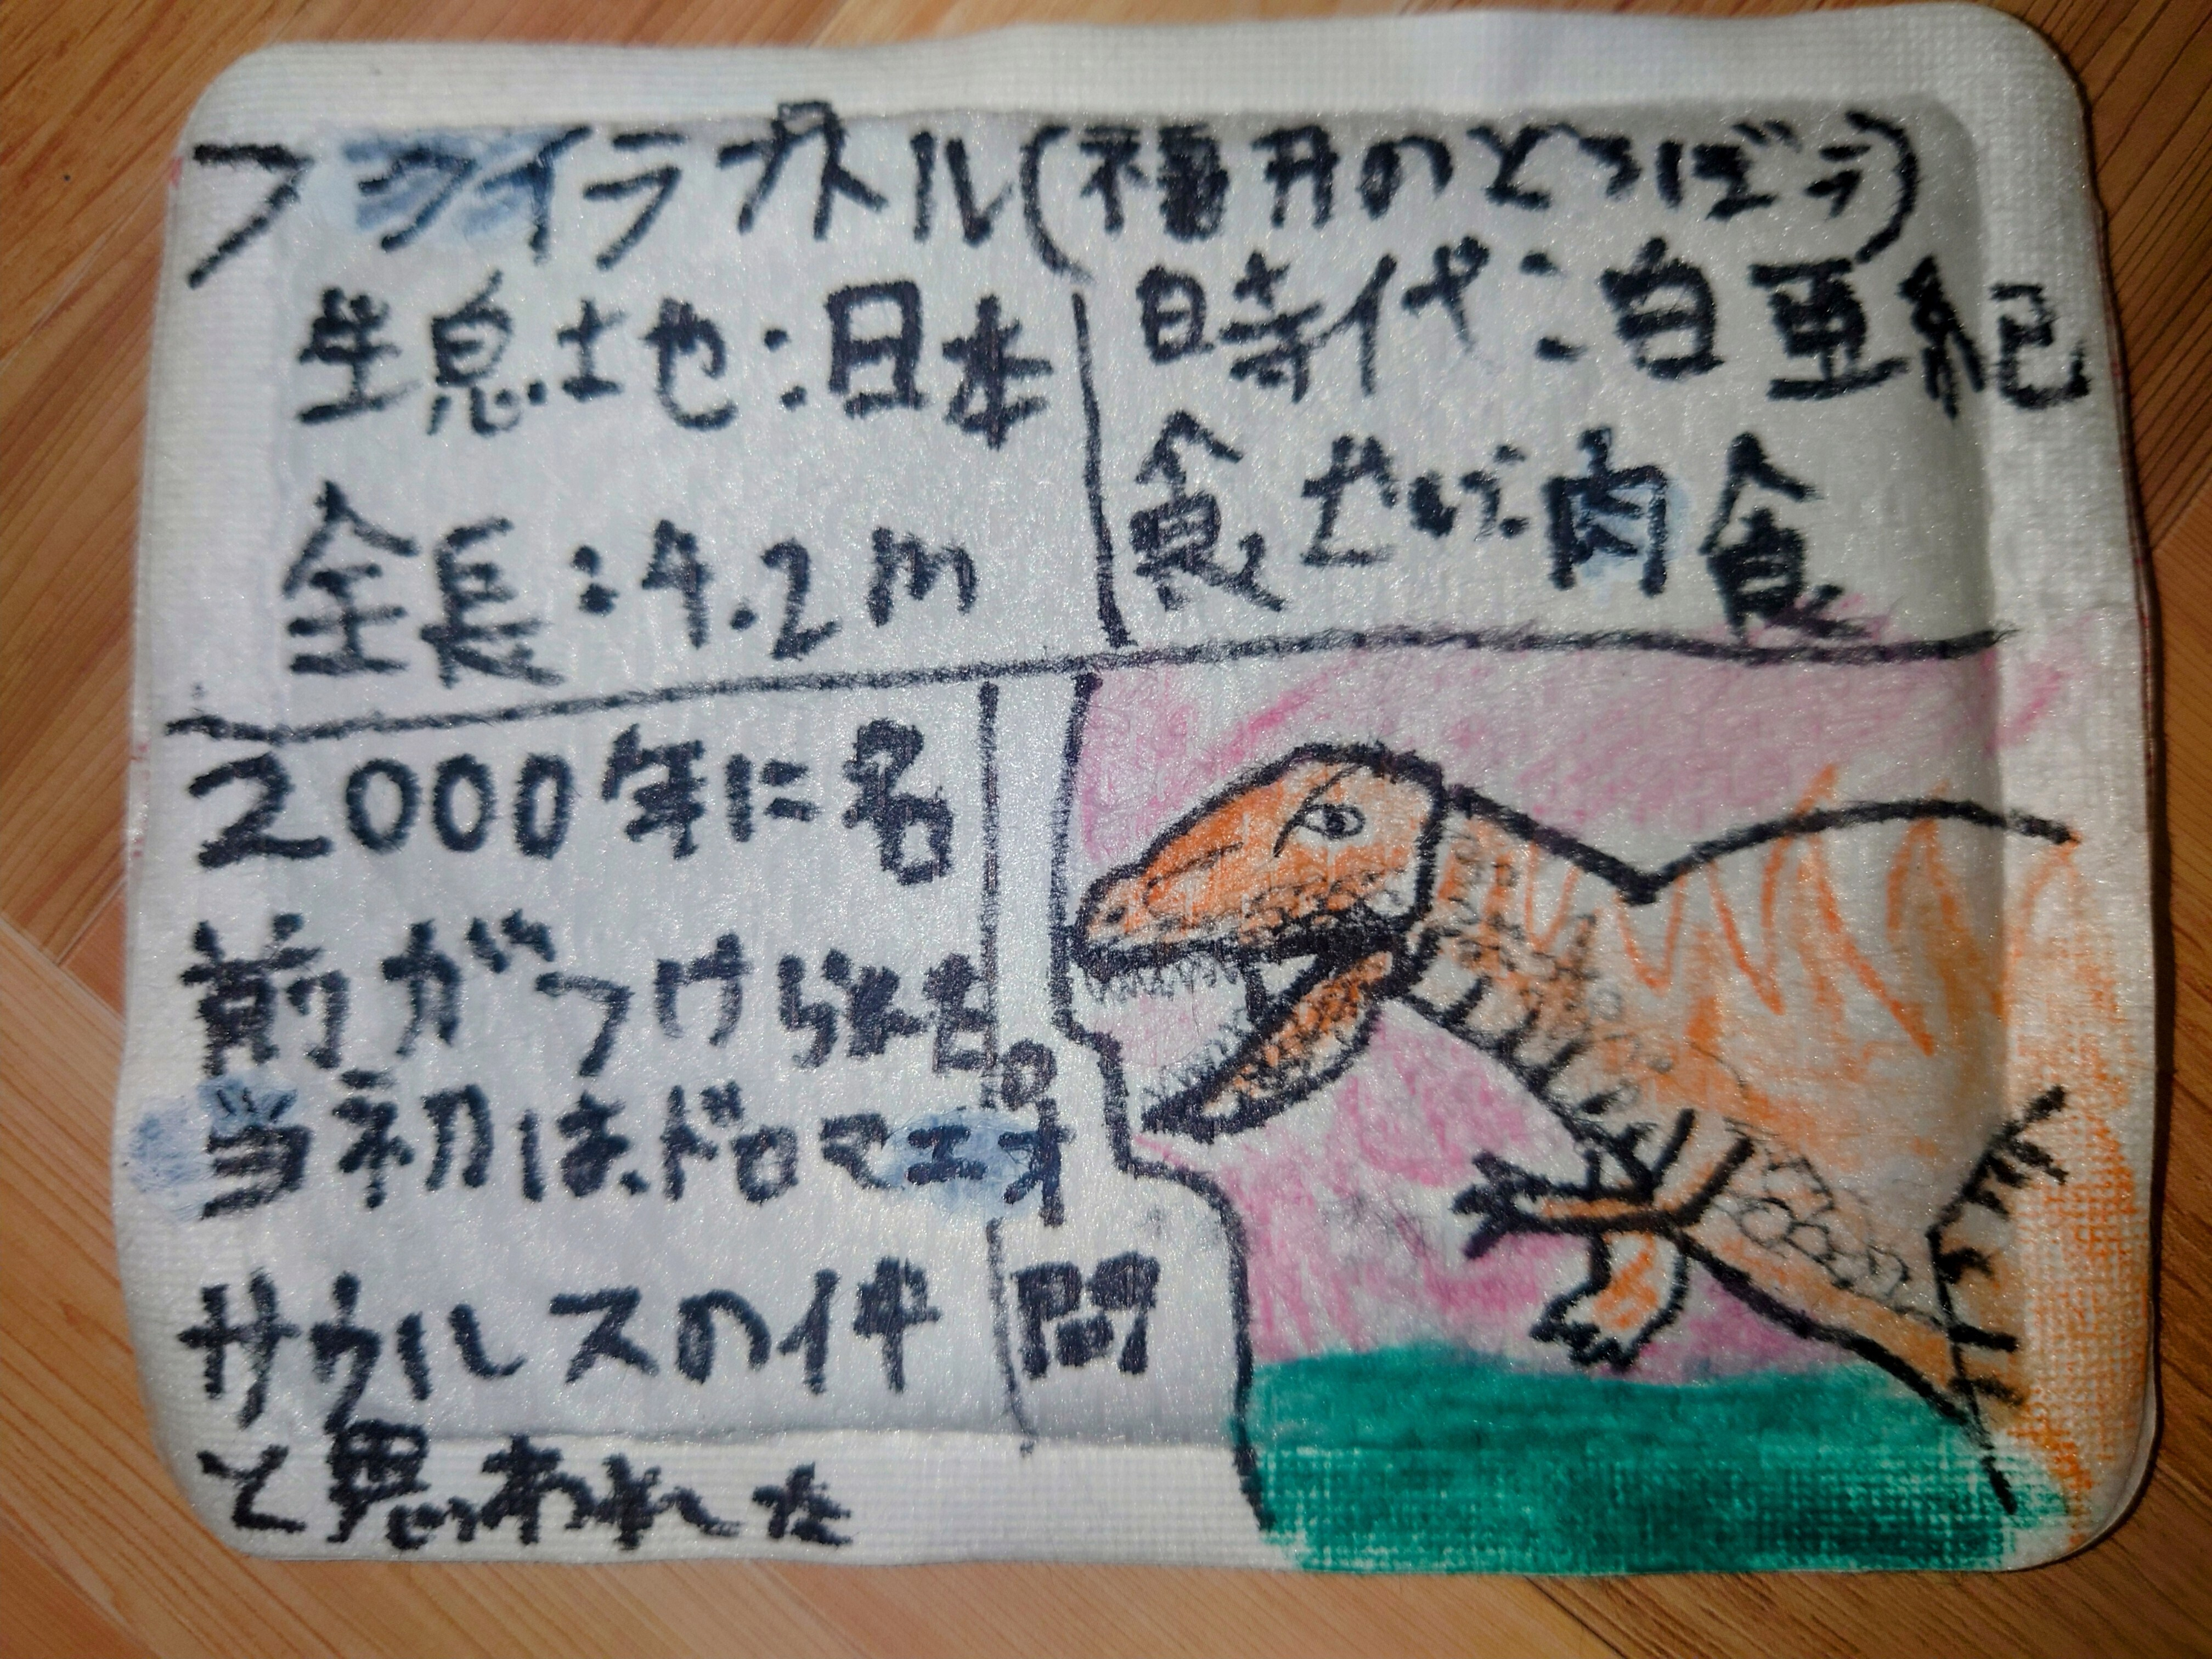 フクイラプトル(福井のどろぼう)
生息地:日本
時代:白亜紀
全長:4.2m
食せい:肉食
2000年に名
前がつけられた
当初は、ドロマエオ
サウルスの仲間
と思われた